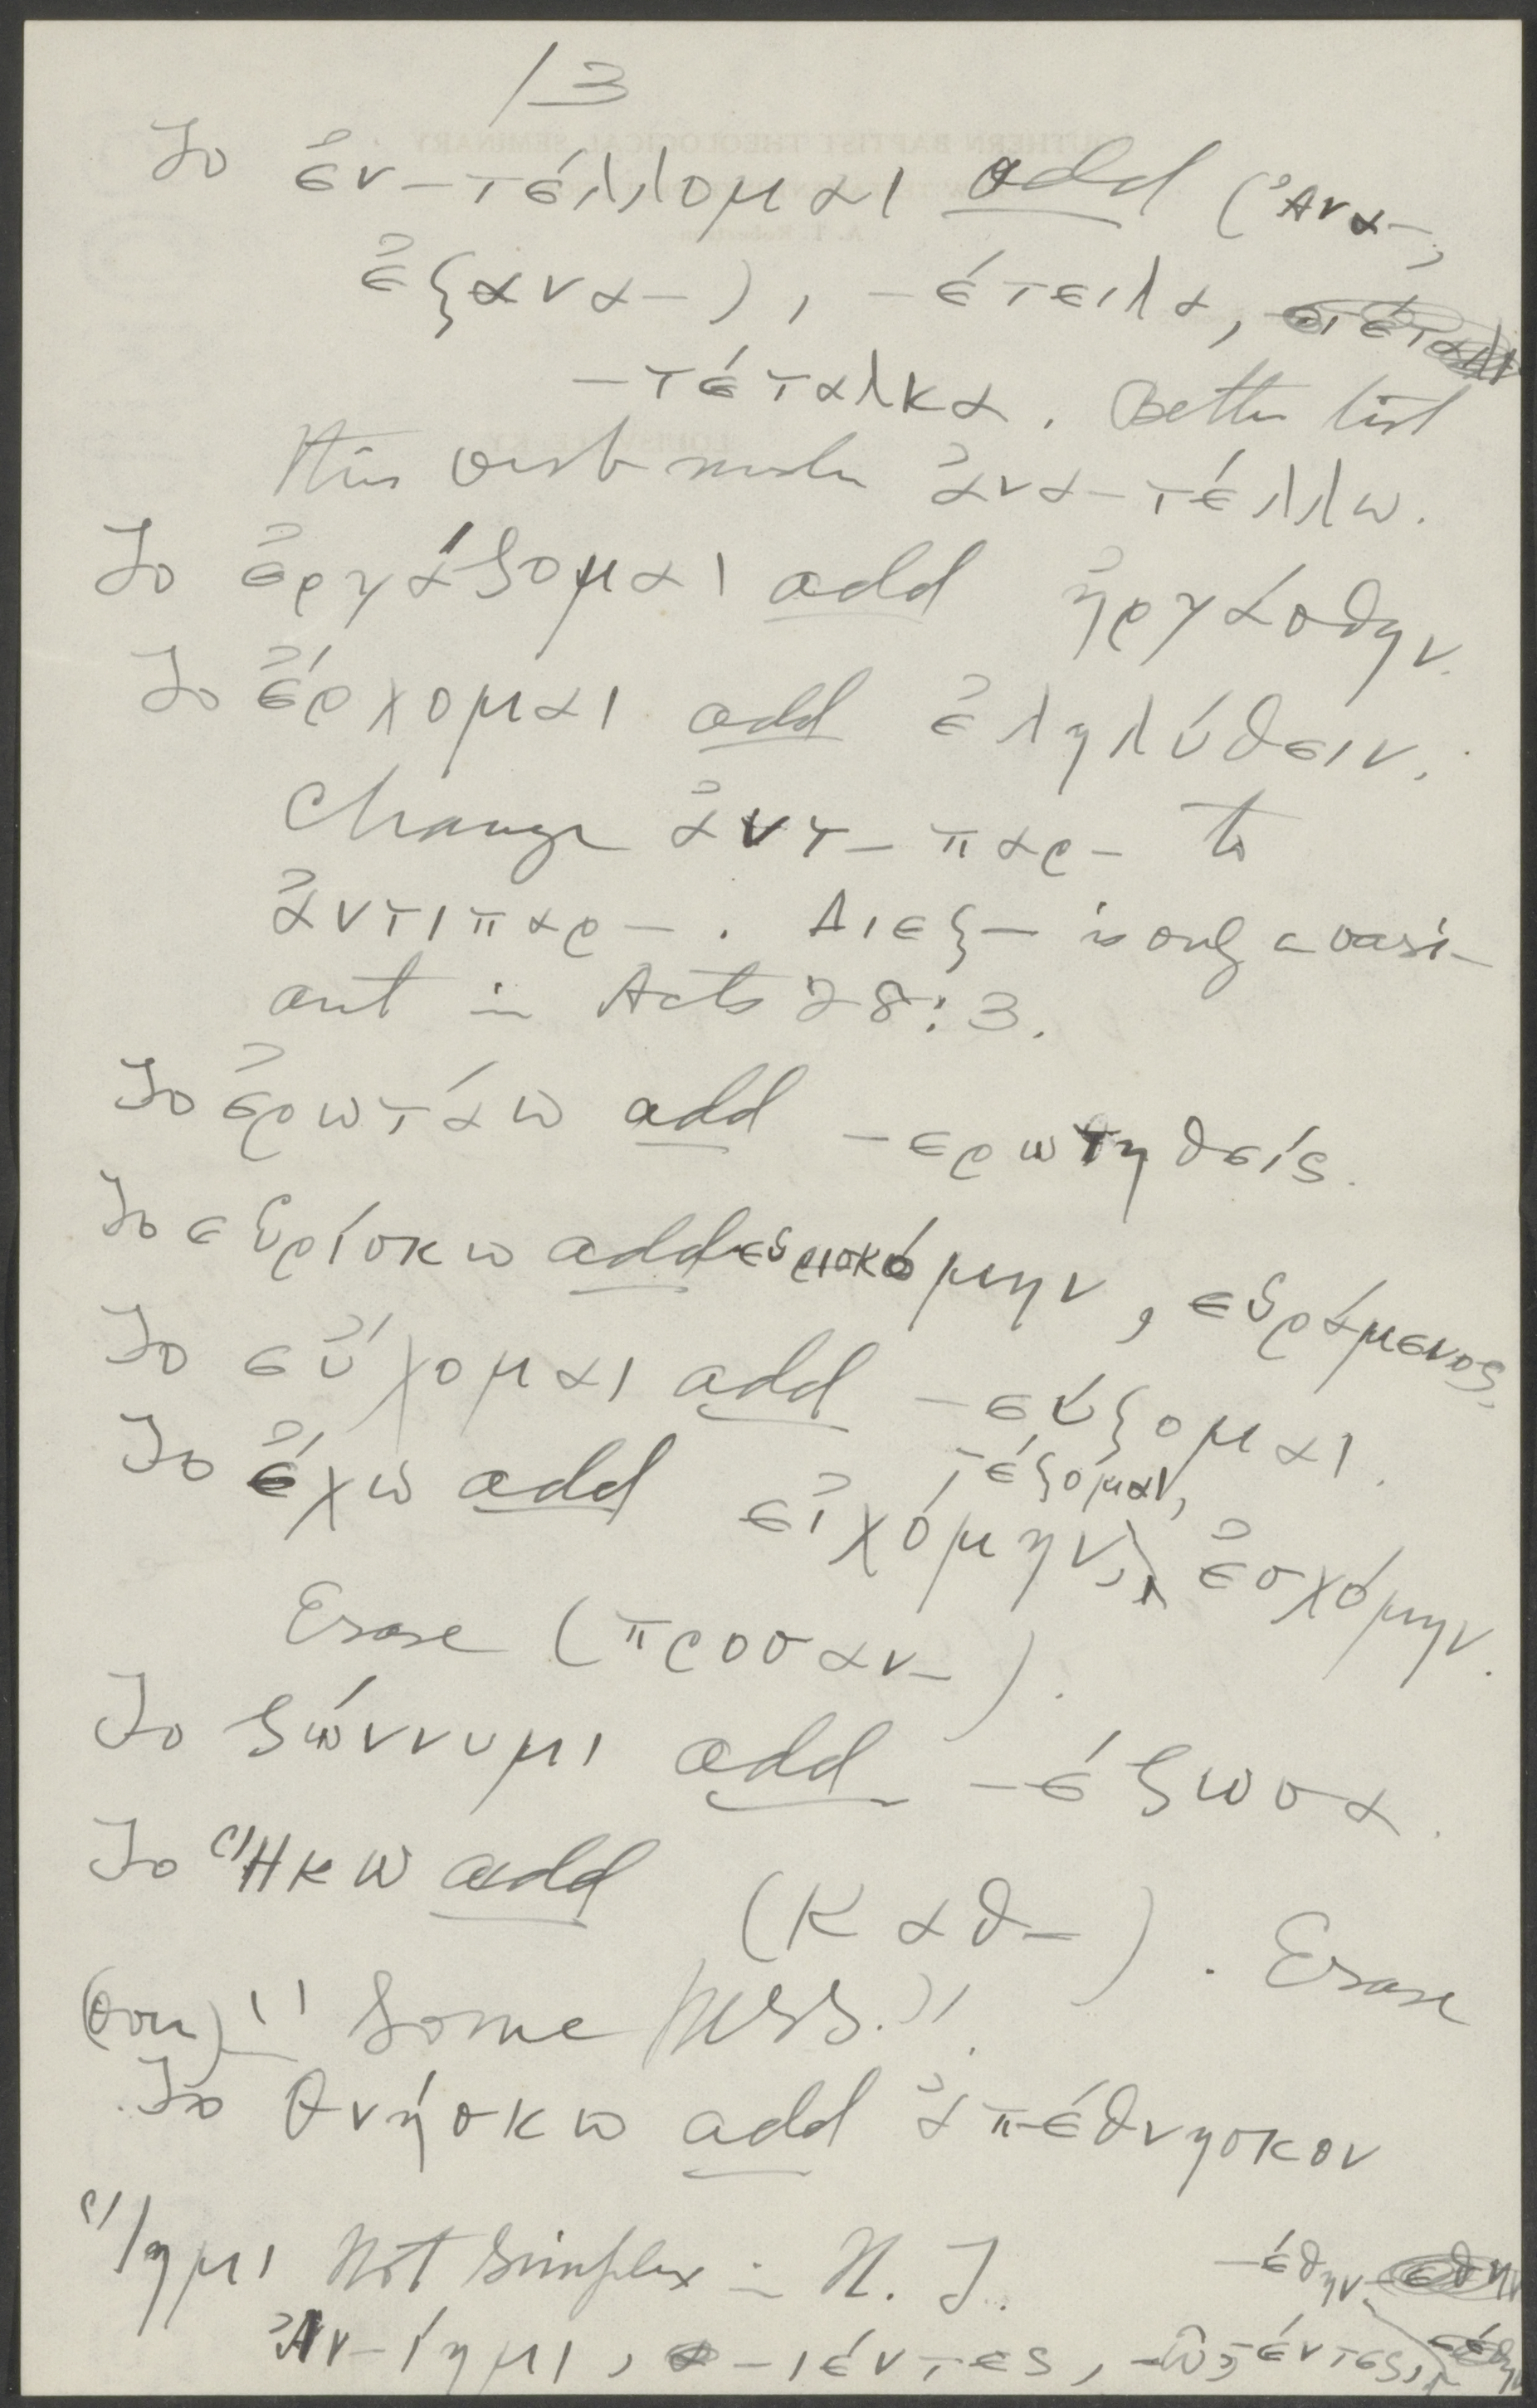 13
To ἐν-τέλλομαι add (Ἀνα-,
ἐξανα-), -έτειλα,
-τέταλκα. Better list
this verb under ἀνα-τέλλω.
To ἐργάζομαι add ἠργάσθην.
To ἔρχομαι add ἐληλύθειν.
Change ἀντ-παρ- to
ἀντιπαρ-. Διεξ- is only a vari-
ant in Acts 28:3.
To ἐρωτάω add -ερωτηθείς.
To εὑρίσκω add εὑρισκόμην, εὑράμενος.
To εὔχομαι add -εύξομαι.
To ἔχω add εἰχόμην, -έξομαι, ἐσχόμην.
Erase (προσαν-).
To ζώννυμι add -έζωσα.
To Ἥκω add (Καθ-). Erase
"Some MSS."
To θνήσκω add ἀπέθνησκον
Ἵημι Not Simplex in N. T. -έθην
Ἀν-ίημι, -ιέντες, -ῶ, -έντες,